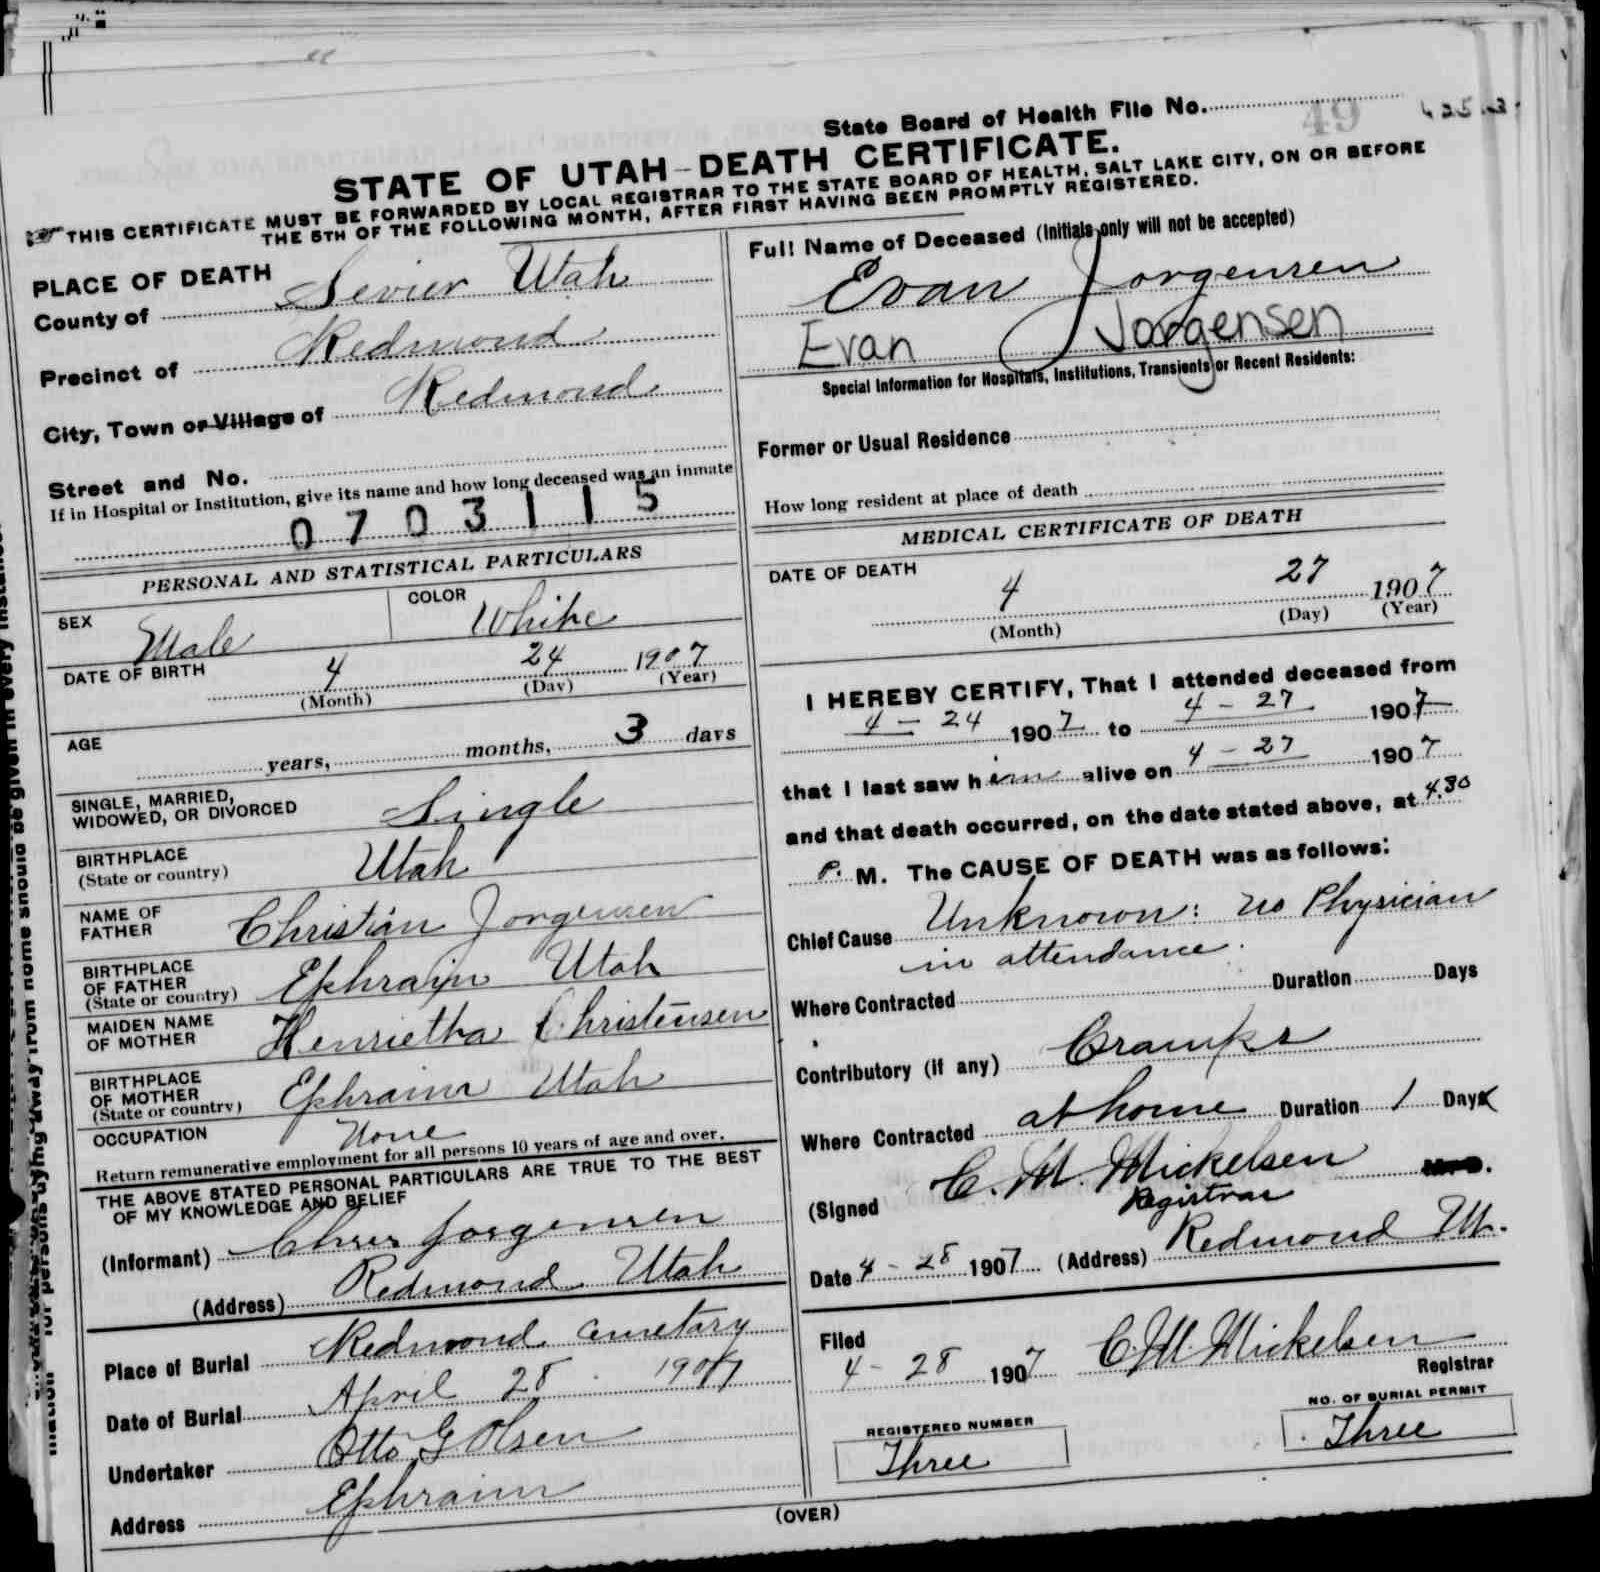 State Board of Health File No.
49
STATE OF UTAH-DEATH CERTIFICATE.
THIS CERTIFICATE MUST BE FORWARDED BY LOCAL REGISTRAR TO THE STATE BOARD OF HEALTH, SALT LAKE CITY, ON OR BEFORE
THE 5TH OF THE FOLLOWING MONTH, AFTER FIRST HAVING BEEN PROMPTLY REGISTERED.
PLACE OF DEATH
County of Sevier Utah
Precinct of Redmond
City, Town or Village of Redmond
Street and No.
If in Hospital or Institution, give its name and how long deceased was an inmate
0703115
PERSONAL AND STATISTICAL PARTICULARS
SEX Male
COLOR White
DATE OF BIRTH 4 24 1907
(Month) (Day) (Year)
AGE years, months, 3 days
SINGLE, MARRIED,
WIDOWED, OR DIVORCED Single
BIRTHPLACE
(State or country) Utah
NAME OF
FATHER Christian Jorgensen
BIRTHPLACE
OF FATHER
(State or country) Ephraim Utah
MAIDEN NAME
OF MOTHER Henrietta Christensen
BIRTHPLACE
OF MOTHER
(State or country) Ephraim Utah
OCCUPATION None
Return remunerative employment for all persons 10 years of age and over.
THE ABOVE STATED PERSONAL PARTICULARS ARE TRUE TO THE BEST
OF MY KNOWLEDGE AND BELIEF
(Informant) Chris Jorgensen
(Address) Redmond Utah
Place of Burial Redmond Cemetary
Date of Burial April 28 1907
Undertaker Otto G Olsen
Address Ephraim
Full Name of Deceased (Initials only will not be accepted)
Evan Jorgensen
Evan Jorgensen
Special Information for Hospitals, Institutions, Transients or Recent Residents:
Former or Usual Residence
How long resident at place of death
MEDICAL CERTIFICATE OF DEATH
DATE OF DEATH
4 27 1907
(Month) (Day) (Year)
I HEREBY CERTIFY, That I attended deceased from
4-24 1907 to 4-27 1907
that I last saw him alive on 4-27 1907
and that death occurred, on the date stated above, at 4.30
P. M. The CAUSE OF DEATH was as follows:
Chief Cause Unknown: no Physician
in attendance.
Where Contracted Duration Days
Contributory (if any) Cramps
Where Contracted at home Duration 1 Days
(Signed C. M. Mickelsen M. D.
Registrar
Date 4-28 1907 (Address) Redmond Ut.
Filed
4-28 1907 C. M. Mickelsen
Registrar
REGISTERED NUMBER
Three
NO. OF BURIAL PERMIT
Three
(OVER)